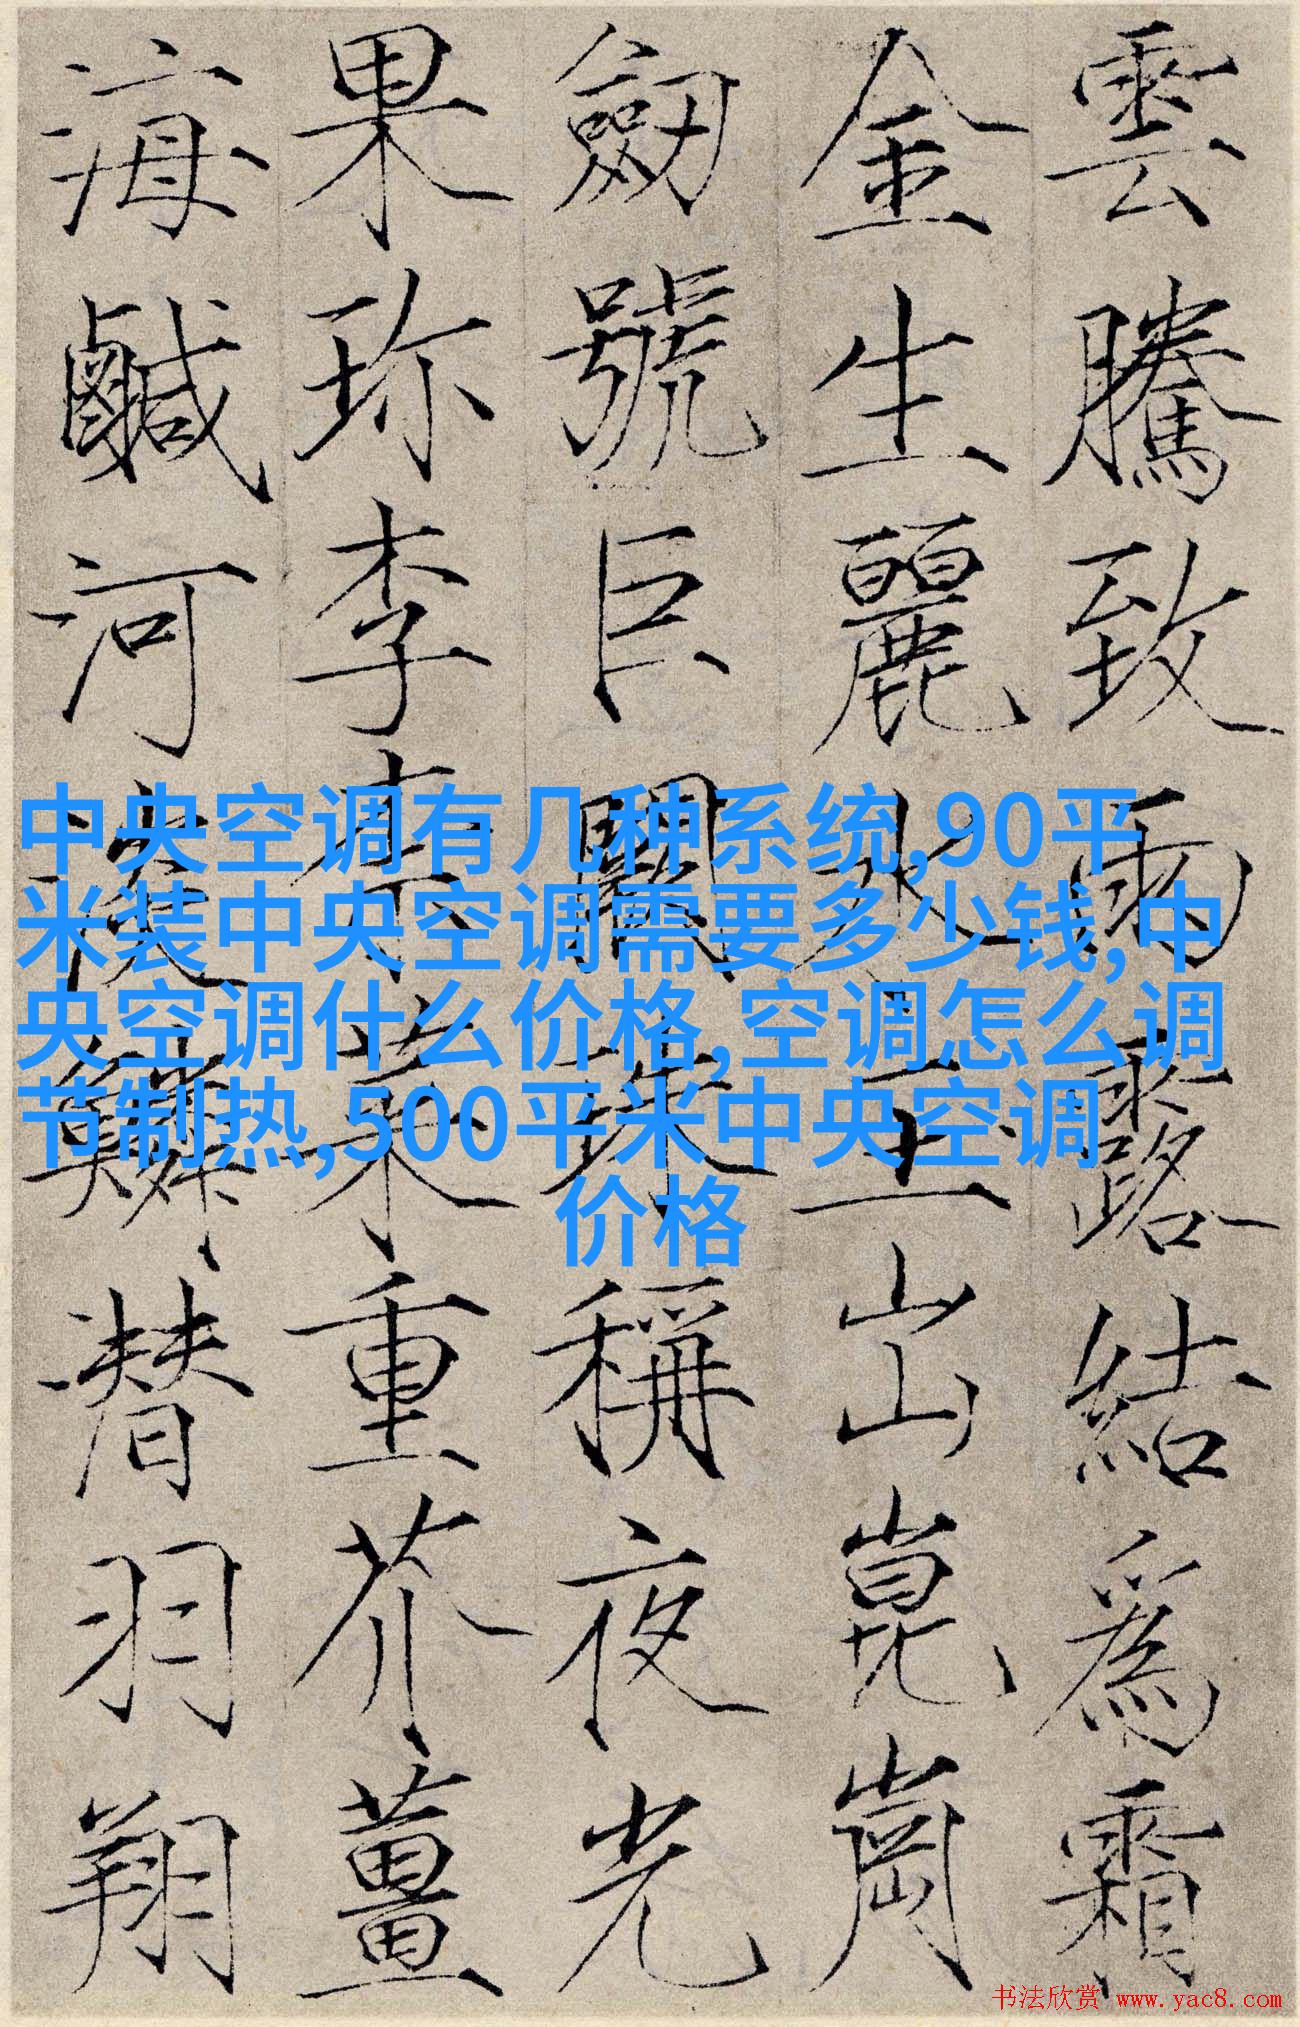 雲騰致雨露結爲霜
金生麗水玉出崑崗
劒號巨闕珠稱夜光
果珎李柰菜重芥薑
海鹹河淡鱗潜羽翔
中央空调有几种系统,90平
米装中央空调需要多少钱,中
央空调什么价格,空调怎么调
节制热,500平米中央空调
价格
书法欣赏 www.yac8.com